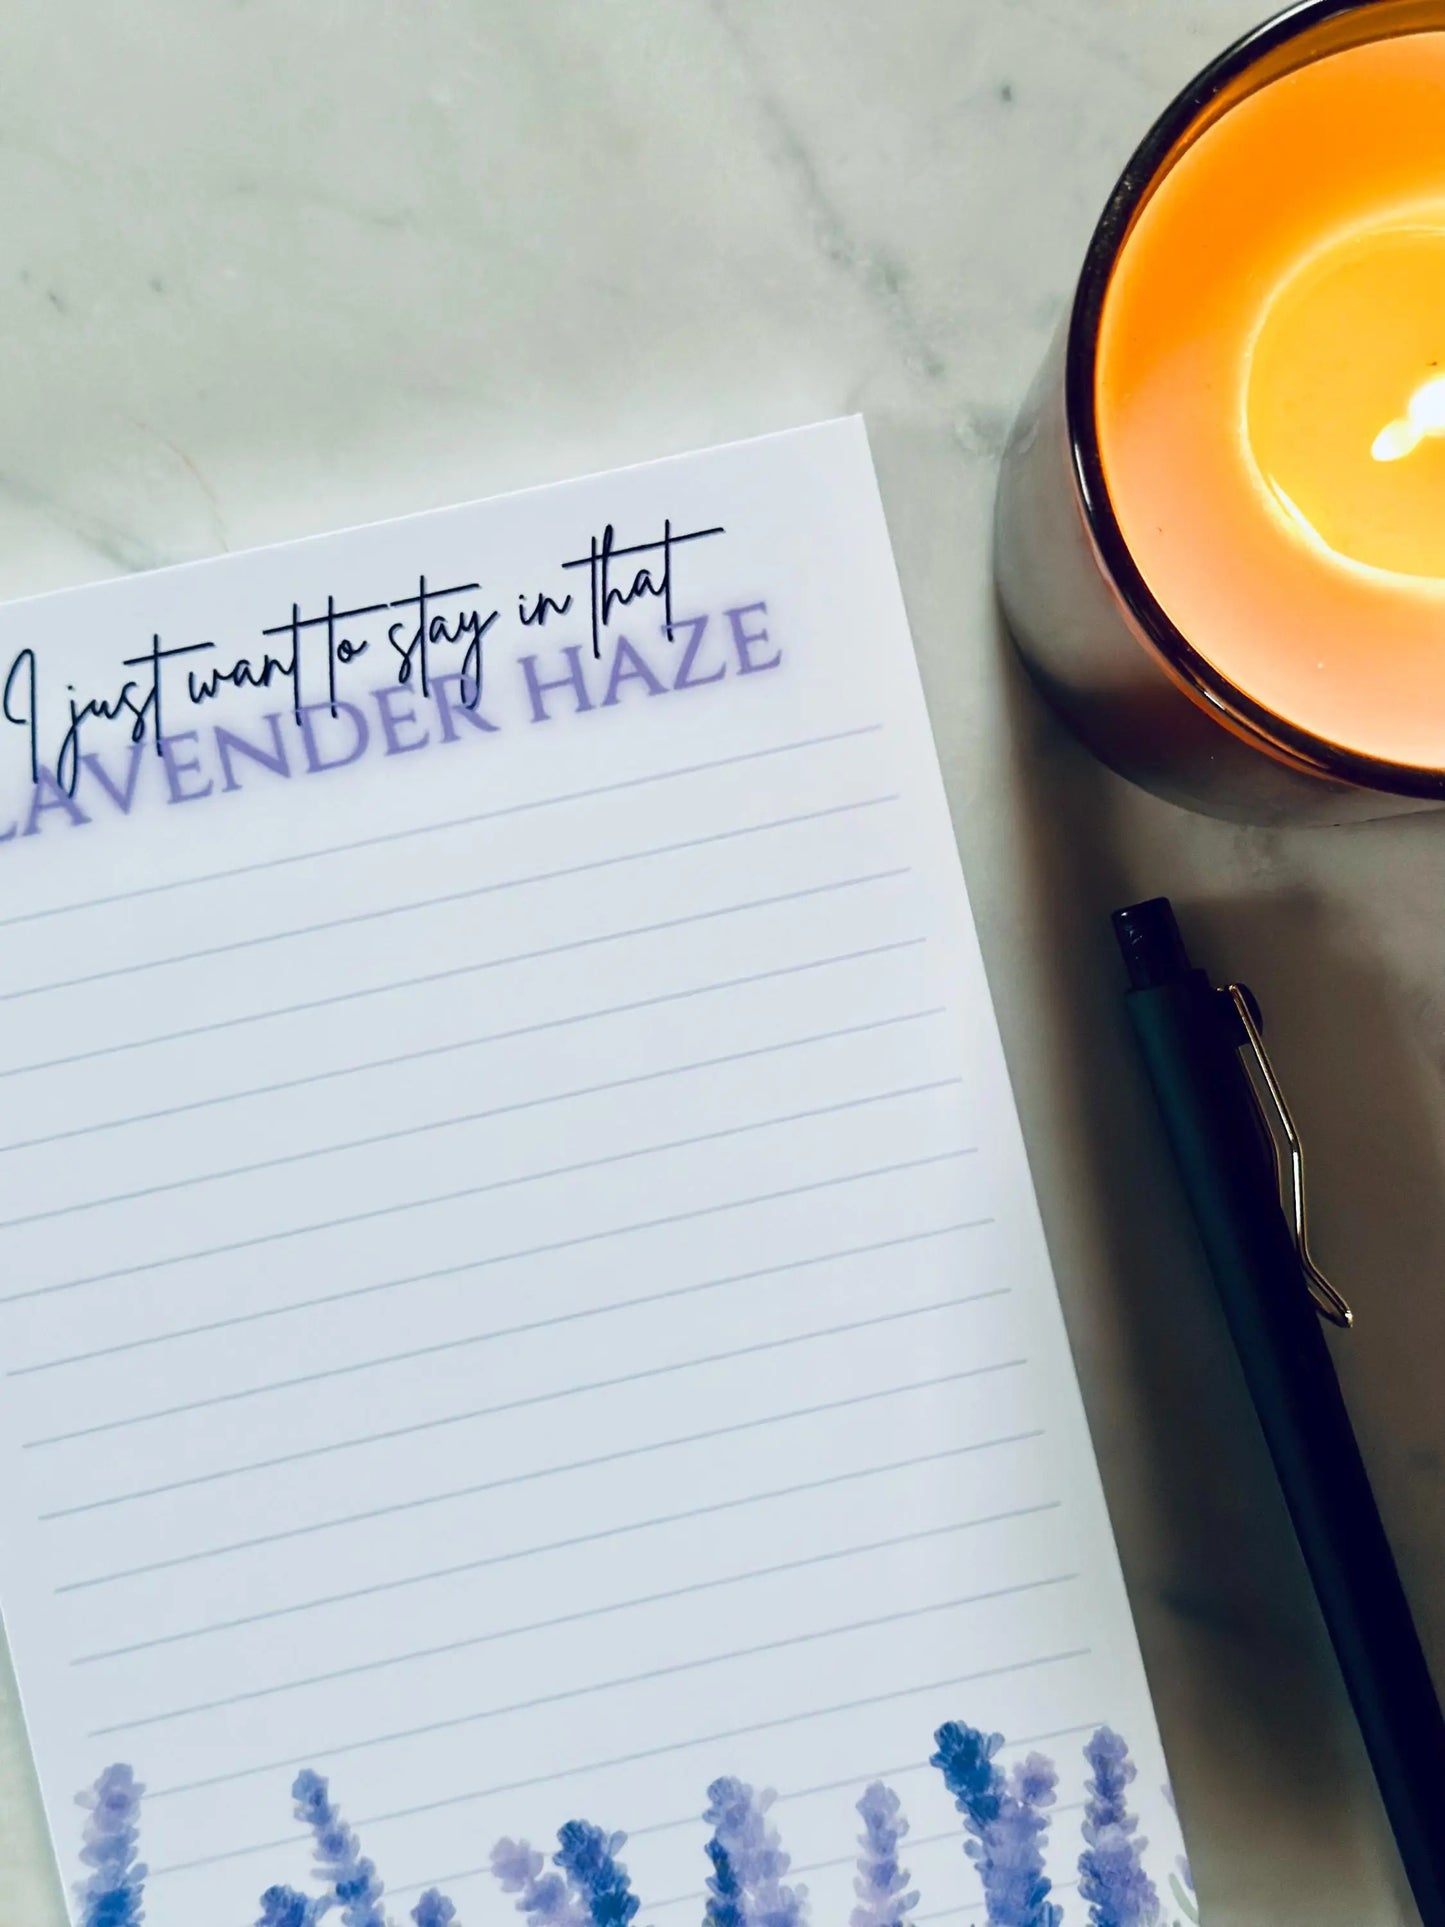 I just want to stay in that
LAVENDER HAZE